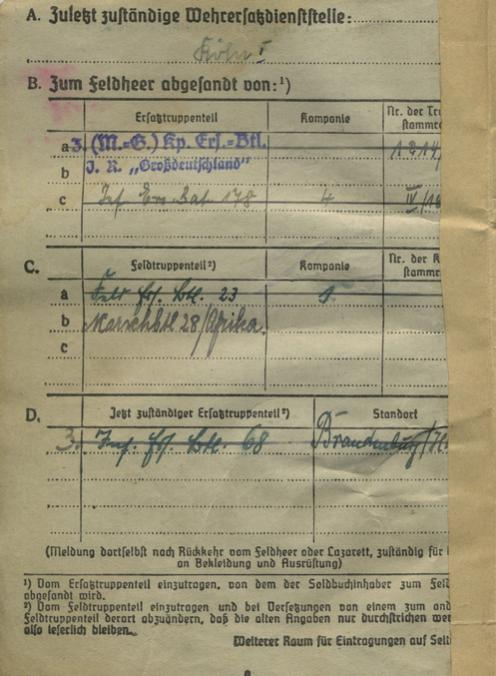 A. Zuletzt zuständige Wehrersatzdienststelle:
Köln I
B. Zum Feldheer abgesandt von:¹)
Ersatztruppenteil Kompanie Nr. der Tr
stammro
a 3. (M.=G.) Kp. Ers.=Btl.
b J. R. „Großdeutschland"
c Inf Ers Bat 178 4 IV/
C. Feldtruppenteil²) Kompanie Nr. der K
stammr
a Feld Ers. Btl. 23
b Marschbtl 28/Afrika.
c
D. Jetzt zuständiger Ersatztruppenteil²) Standort
3. Inf. Ers. Btl. 68 Brandenburg/H
(Meldung dortselbst nach Rückkehr vom Feldheer oder Lazarett, zuständig für
an Bekleidung und Ausrüstung)
¹) Vom Ersatztruppenteil einzutragen, von dem der Soldbuchinhaber zum Feld
abgesandt wird.
²) Vom Feldtruppenteil einzutragen und bei Versetzungen von einem zum and
Feldtruppenteil derart abzuändern, daß die alten Angaben nur durchstrichen wer
also leserlich bleiben.
Weiterer Raum für Eintragungen auf Seit